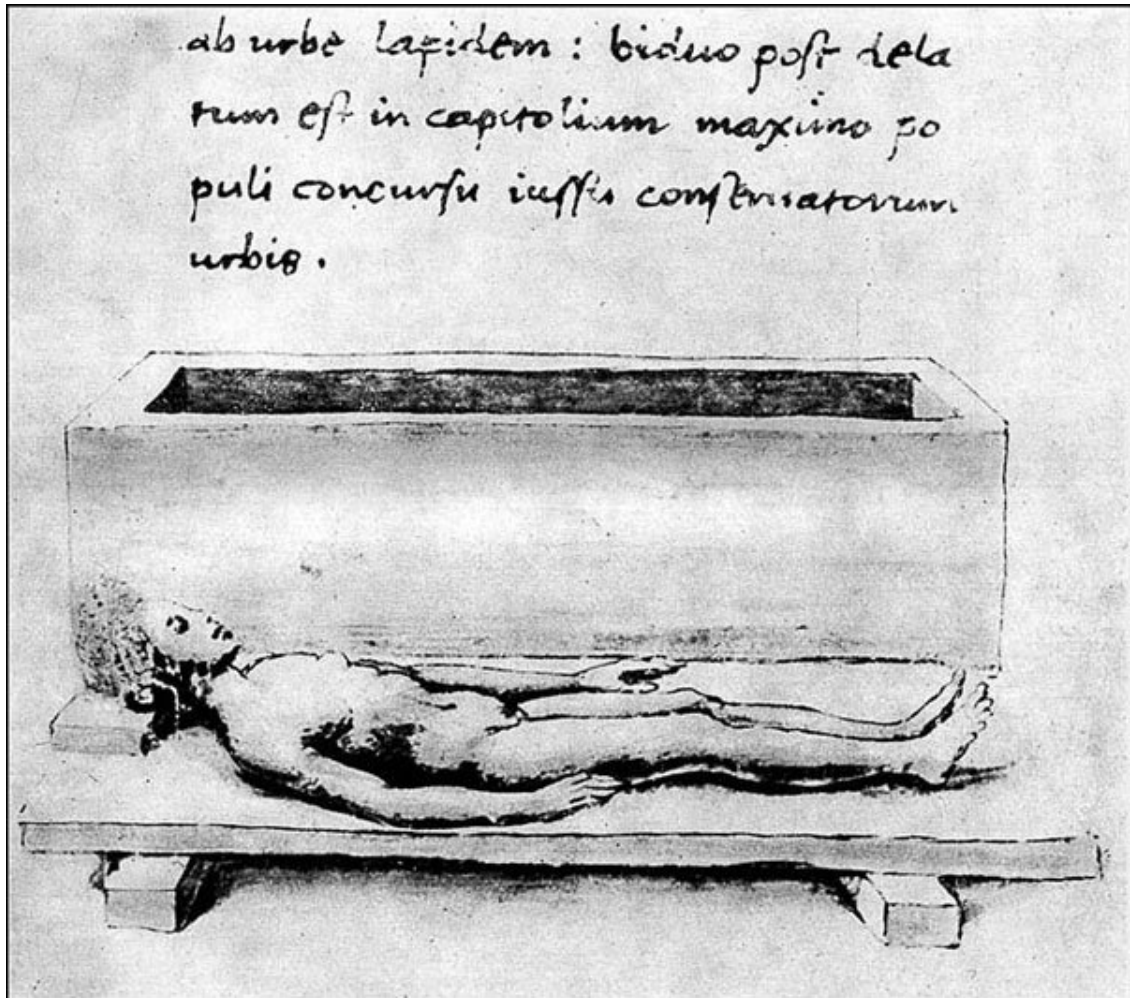 ab urbe lapidem : biduo post dela
tum est in capitolium maximo po
puli concursu iussu conseruatorum
urbis .